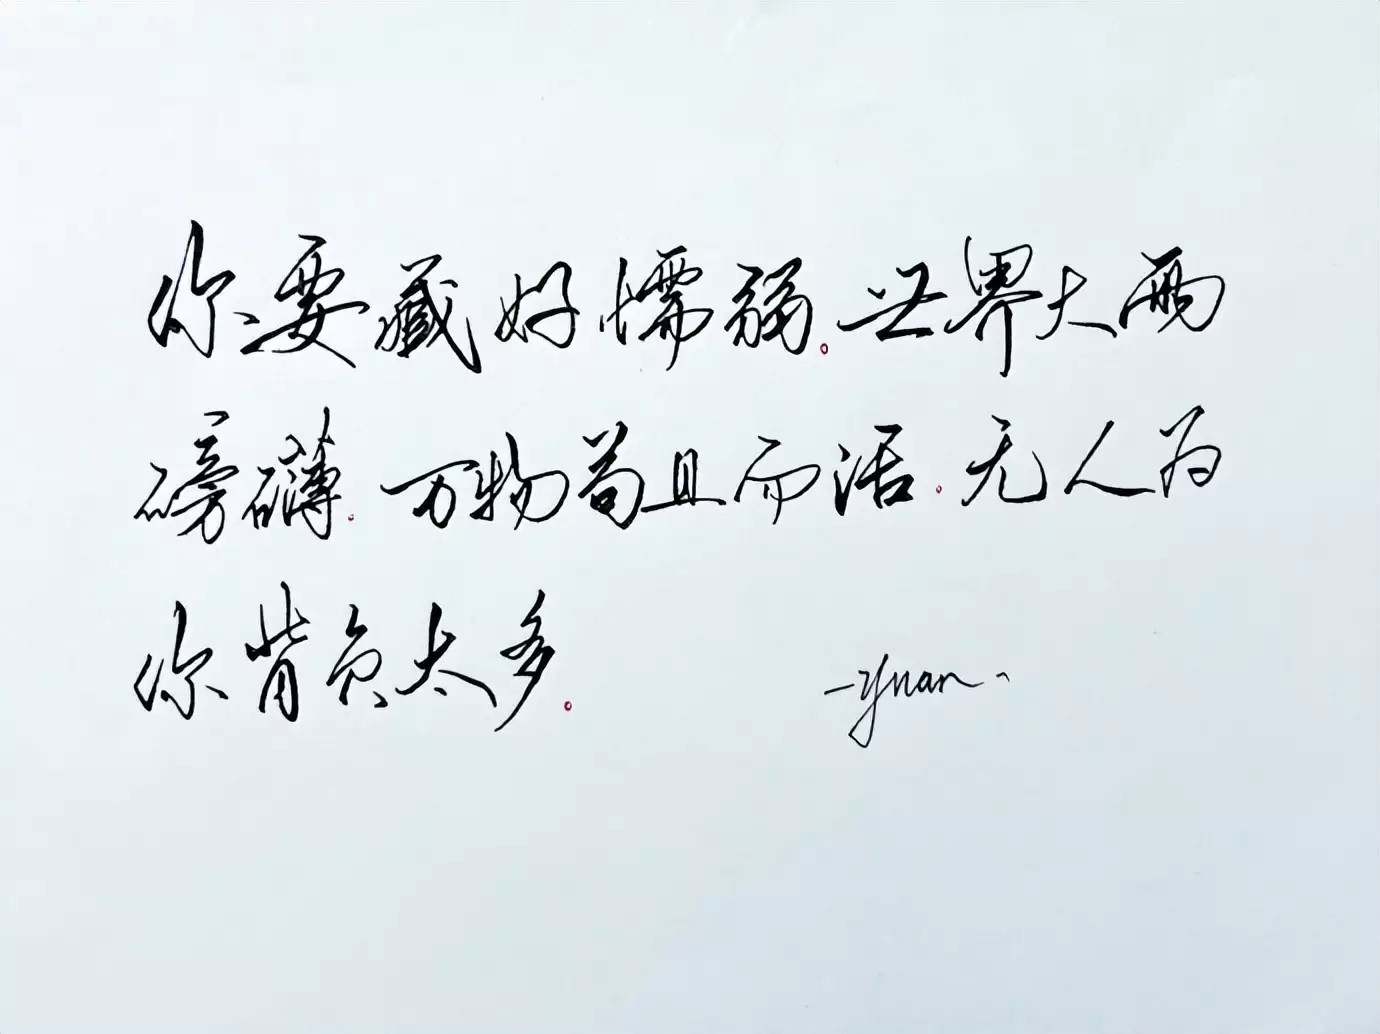 你要藏好懦弱。世界大雨
磅礴。万物苟且而活。无人为
你背负太多。
-yuan、